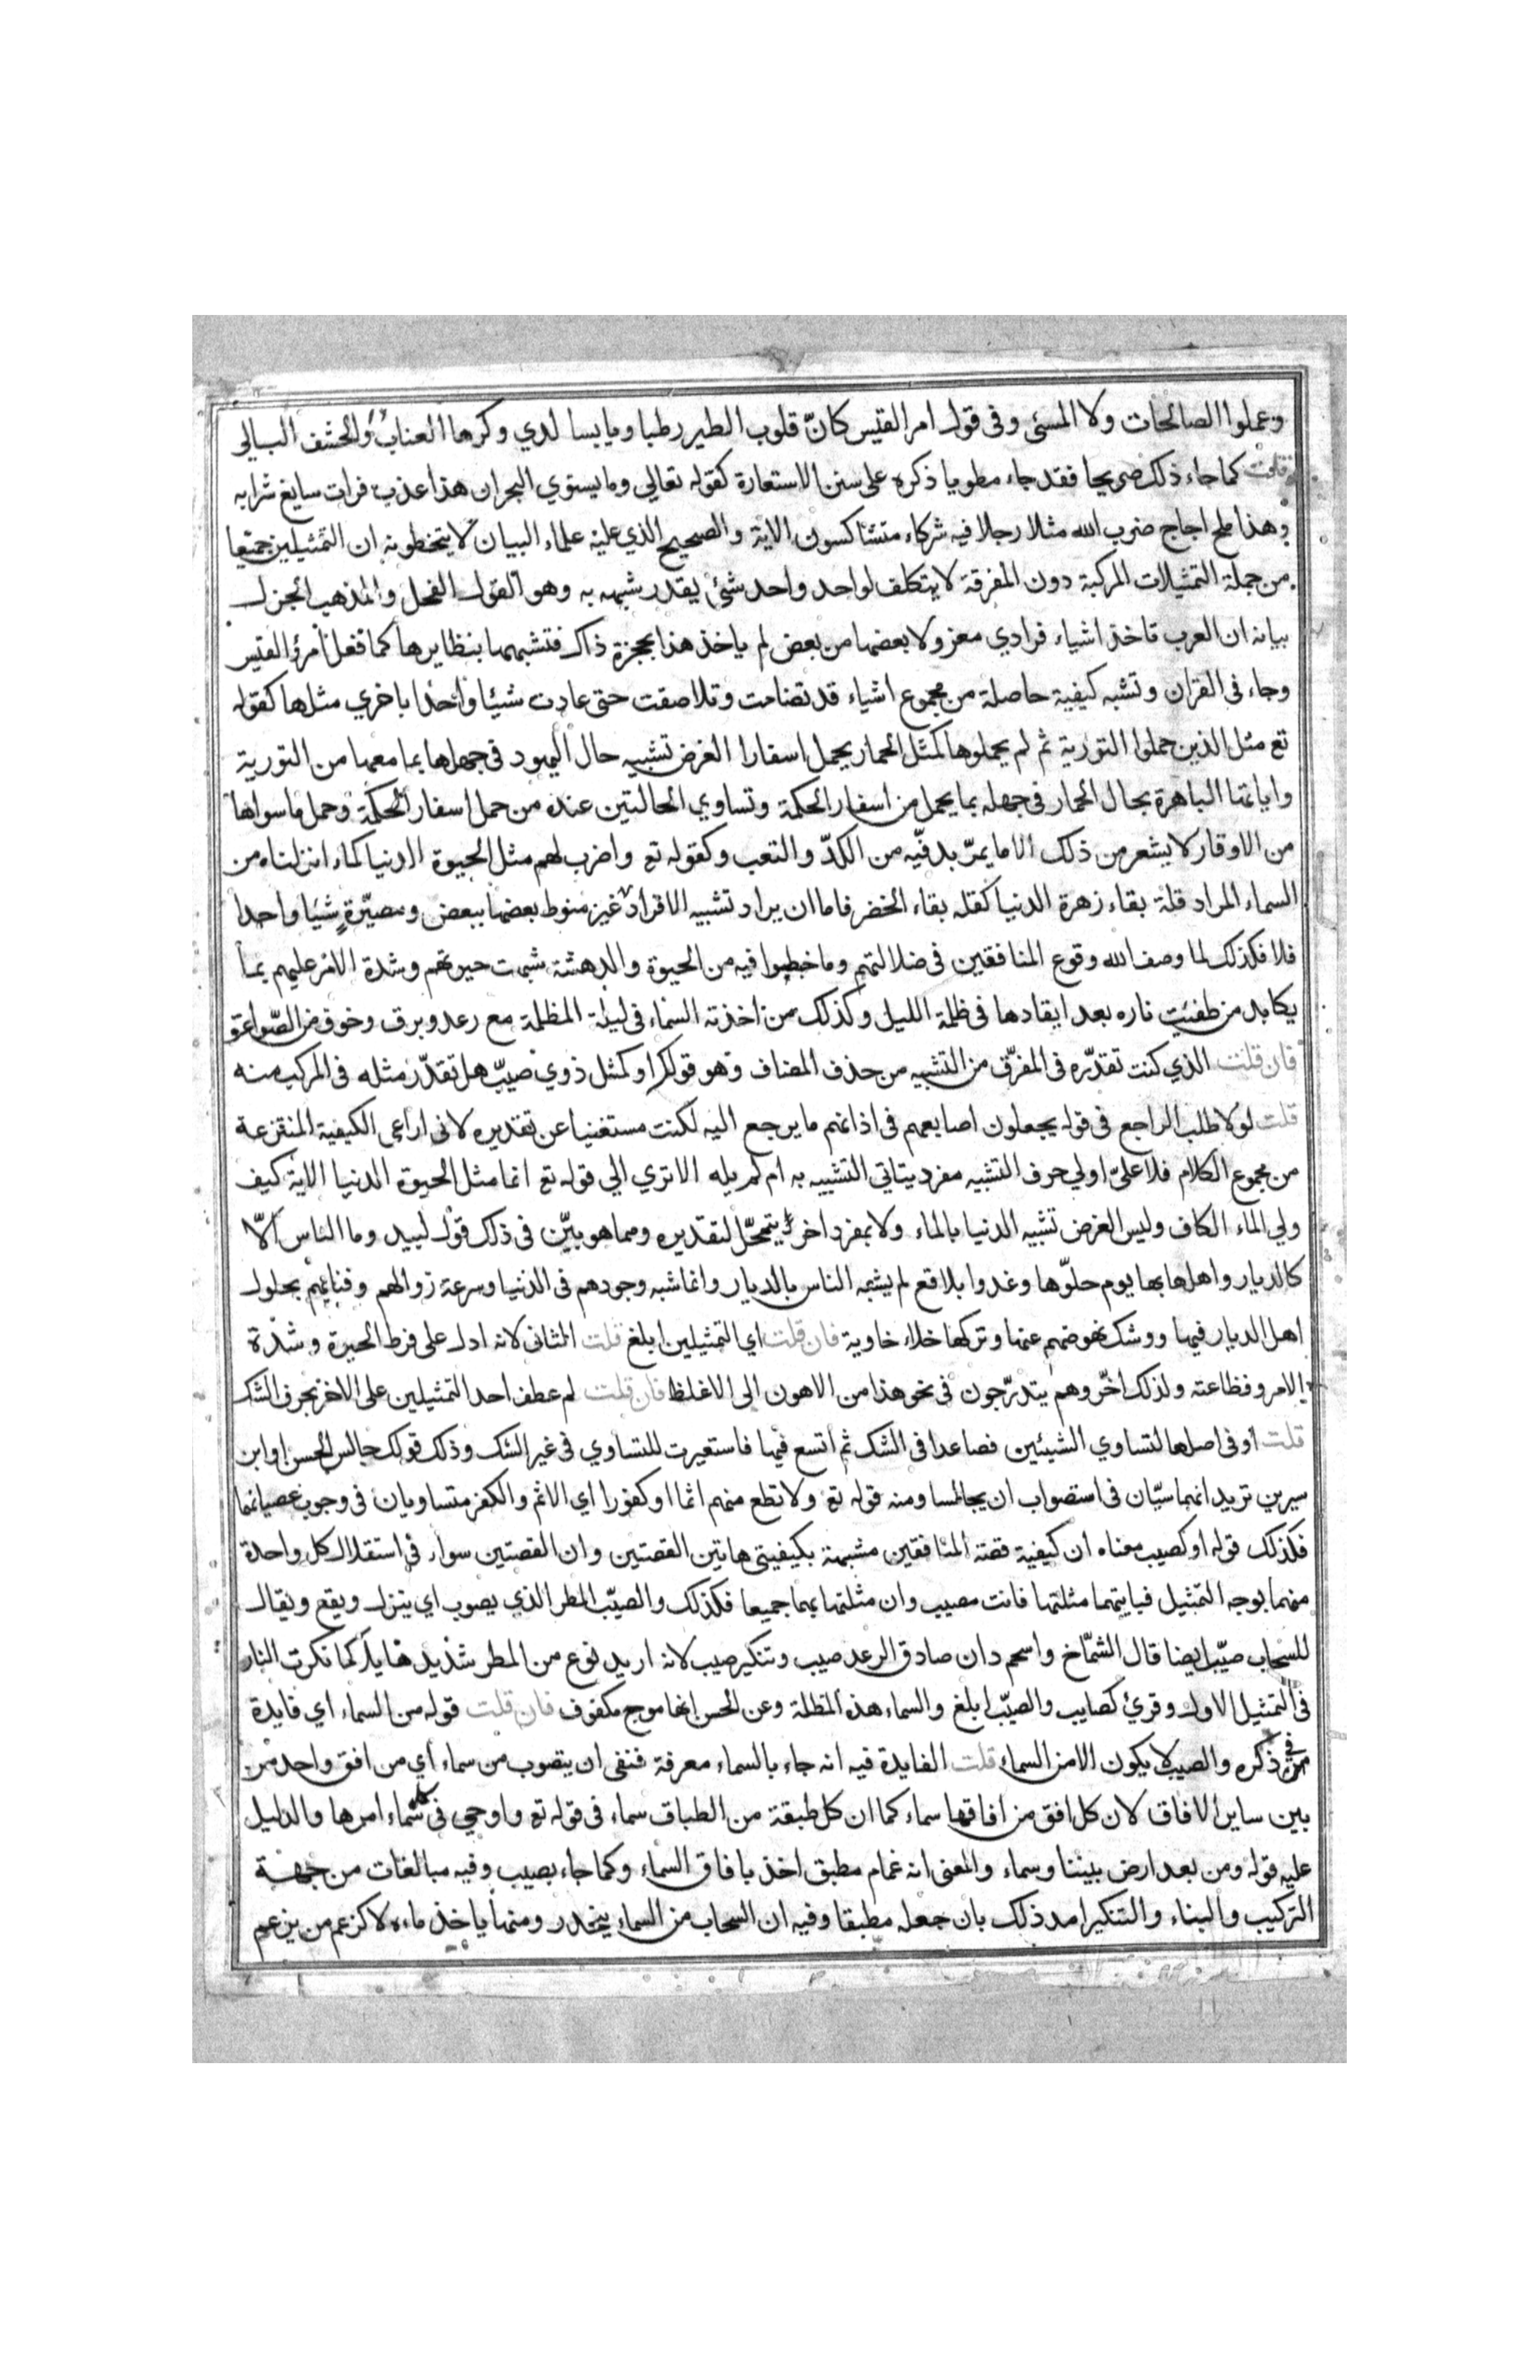 وعملوا الصالحات ولا المسئ وفى قول امر القيس كانّ قلوب الطير رطبا ويابسا لدي وكرها العناب والحشف البالى
قلت كما جاء ذلك صريحا فقد جاء مطويا ذكره على سنن الاستعارة كقوله تعالي وما يستوي البحران هذا عذب فرات سايغ شرابه
وهذا ملح اجاج ضرب الله مثلا رجلا فيه شركاء متشاكسون الاية والصحيح الذي عليه علماء البيان لا يتخطونه ان التمثيلين جميعا
من جملة التمثيلات المركبة دون المفرقة لا يتكلف لواحد واحد شئ يقدر شبهه به وهو القول الفحل والمذهب الجزل
بيانه ان العرب تاخذ اشياء فرادي معزولا بعضها من بعض لم ياخذ هذا بحجزة ذاك فتشبهها بنظايرها كما فعل امرؤ القيس
وجاء فى القران وتشبه كيفية حاصلة من مجموع اشياء قد تضامت وتلاصقت حتى عادت شيئا واحدا باخري مثلها كقوله
تع مثل الذين حملوا التورية ثم لم يحملوها كمثل الحمار يحمل اسفارا الغرض تشبيه حال اليهود فى جهلها بما معها من التورية
واياتها الباهرة بحال الحمار فى جهله بما يحمل من اسفار الحكمة وتساوي الحالتين عنده من حمل اسفار الحكمة وحمل ما سواها
من الاوقار لا يشعر من ذلك الا ما يمرّ بدفّيه من الكدّ والتعب وكقوله تع واضرب لهم مثل الحيوة الدنيا كماء انزلناه من
السماء المراد قلة بقاء زهرة الدنيا كقلة بقاء الخضر فاما ان يراد تشبيه الافراد غير منوط بعضها ببعض ومصيّرة شيئا واحدا
فلا فكذلك لما وصف الله وقوع المنافقين فى ضلالتهم وما خبطوا فيه من الحيرة والدهشة شبهت حيرتهم وشدة الامر عليهم بما
يكابد من طفئت ناره بعد ايقادها فى ظلمة الليل وكذلك من اخذته السماء فى ليلة المظلمة مع رعد وبرق وخوف من الصواعق
فان قلت الذي كنت تقدّره فى المفرّق من التشبيه من حذف المضاف وهو قولك او كمثل ذوي صيّب هل تقدّر مثله فى المركب منه
قلت لولا طلب الراجع فى قوله يجعلون اصابعهم فى اذانهم ما يرجع اليه لكنت مستغنيا عن تقديره لانى اراعى الكيفية المنتزعة
من مجموع الكلام فلا علىّ اولي حرف التشبيه مفرد يتاتي التشبيه به ام لم يله الا تري الي قوله تع انما مثل الحيوة الدنيا الاية كيف
ولي الماء الكاف وليس الغرض تشبيه الدنيا بالماء ولا بمفرد اخر يتمحّل لتقديره ومما هو بيّن فى ذلك قول لبيد وما الناس الّا
كالديار واهلها بها يوم حلوّها وغدوا بلاقع لم يشبه الناس بالديار وانما شبه وجودهم فى الدنيا وسرعة زوالهم وفنائهم بحلول
اهل الديار فيها ووشك نهوضهم عنها وتركها خلاء خاوية فان قلت اي التمثيلين ابلغ قلت الثانى لانه ادل على فرط الحيرة وشدة
الامر وفظاعته ولذلك اخّر وهم يتدرّجون فى نحو هذا من الاهون الى الاغلظ فان قلت لم عطف احد التمثيلين على الاخر بحرف الشك
قلت او فى اصلها لتساوي الشيئين فصاعدا فى الشك ثم اتسع فيها فاستعيرت للتساوي فى غير الشك وذلك قولك جالس الحسن او ابن
سيرين تريد انهما سيّان فى استصواب ان يجالسا ومنه قوله تع ولا تطع منهم اثما او كفورا اي الاثم والكفر متساويان فى وجوب عصيانهما
فكذلك قوله او كصيب معناه ان كيفية قصة المنافقين مشبهة بكيفيتى هاتين القصتين وان القصتين سواء فى استقلال كل واحدة
منهما بوجه التمثيل فبايتهما مثلتها فانت مصيب وان مثلتها بهما جميعا فكذلك والصيّب المطر الذي يصوب اي ينزل ويقع ويقال
للسحاب صيّب ايضا قال الشمّاخ واسحم دان صادق الرعد صيب وتنكير صيب لانه اريد نوع من المطر شديد هايل كما نكرت النار
فى التمثيل الاول وقرئ كصايب والصيّب ابلغ والسماء هذه المظلة وعن الحسن انها موج مكفوف فان قلت قوله من السماء اي فايدة
فى ذكره والصيب لا يكون الا من السماء قلت الفايدة فيه انه جاء بالسماء معرفة فنفى ان يتصوب من سماء اي من افق واحد من
بين ساير الافاق لان كل افق من افاقها سماء كما ان كل طبقة من الطباق سماء فى قوله تع واوحي فى كل سماء امرها والدليل
عليه قوله ومن بعد ارض بيننا وسماء والمعنى انه غمام مطبق اخذ بافاق السماء وكما جاء بصيب وفيه مبالغات من جهة
التركيب والبناء والتنكير امد ذلك بان جعله مطبقا وفيه ان السحاب من السماء ينحدر ومنها ياخذ ماءه لا كزعم من يزعم